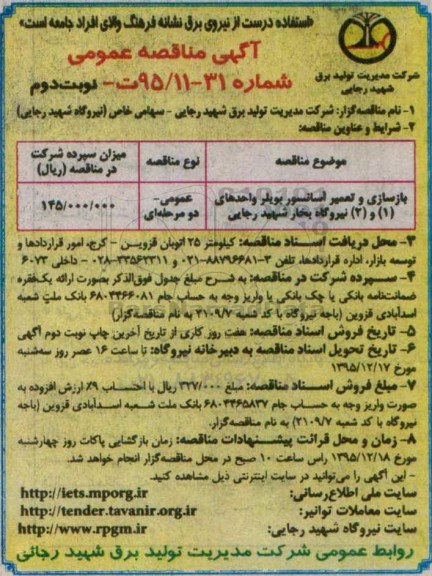 «استفاده درست از نیروی برق نشانه فرهنگ والای افراد جامعه است»
آگهی مناقصه عمومی
شماره ۳۱-۹۵/۱۱ت- نوبت دوم
شرکت مدیریت تولید برق
شهید رجایی
۱- نام مناقصه‌گزار: شرکت مدیریت تولید برق شهید رجایی - سهامی خاص (نیروگاه شهید رجایی)
۲- شرایط و عناوین مناقصه:
موضوع مناقصه | نوع مناقصه | میزان سپرده شرکت در مناقصه (ریال)
بازسازی و تعمیر آسانسور بویلر واحدهای (۱) و (۲) نیروگاه بخار شهید رجایی | عمومی- دو مرحله‌ای | ۱۴۵/۰۰۰/۰۰۰
۳- محل دریافت اسناد مناقصه: کیلومتر ۲۵ اتوبان قزوین - کرج، امور قراردادها و
توسعه بازار، اداره قراردادها، تلفن ۳-۸۸۷۹۶۶۸۱-۰۲۱ و ۳۳۵۶۲۳۱۱-۰۲۸ - داخلی ۶۰۷۳
۴- سپرده شرکت در مناقصه: به شرح مبلغ جدول فوق‌الذکر بصورت ارائه یک‌فقره
ضمانت‌نامه بانکی یا چک بانکی یا واریز وجه به حساب جام ۶۸۰۴۴۶۶۰۸۱ بانک ملت شعبه
اسدآبادی قزوین (باجه نیروگاه با کد شعبه ۲۱۰۹/۷ به نام مناقصه‌گزار)
۵- تاریخ فروش اسناد مناقصه: هفت روز کاری از تاریخ آخرین چاپ نوبت دوم آگهی
۶- تاریخ تحویل اسناد مناقصه به دبیرخانه نیروگاه: تا ساعت ۱۶ عصر روز سه‌شنبه
مورخ ۱۳۹۵/۱۲/۱۷
۷- مبلغ فروش اسناد مناقصه: مبلغ ۳۲۷/۰۰۰ ریال با احتساب ۹٪ ارزش افزوده به
صورت واریز وجه به حساب جام ۶۸۰۴۴۶۵۸۳۷ بانک ملت شعبه اسدآبادی قزوین (باجه
نیروگاه با کد شعبه ۲۱۰۹/۷) به نام مناقصه‌گزار.
۸- زمان و محل قرائت پیشنهادات مناقصه: زمان بازگشایی پاکات روز چهارشنبه
مورخ ۱۳۹۵/۱۲/۱۸ راس ساعت ۱۰ صبح در محل مناقصه‌گزار انجام خواهد شد.
- این آگهی را می‌توانید در سایت اینترنتی ذیل مشاهده کنید.
سایت ملی اطلاع‌رسانی: http://iets.mporg.ir
سایت معاملات توانیر: http://tender.tavanir.org.ir
سایت نیروگاه شهید رجایی: http://www.rpgm.ir
روابط عمومی شرکت مدیریت تولید برق شهید رجائی